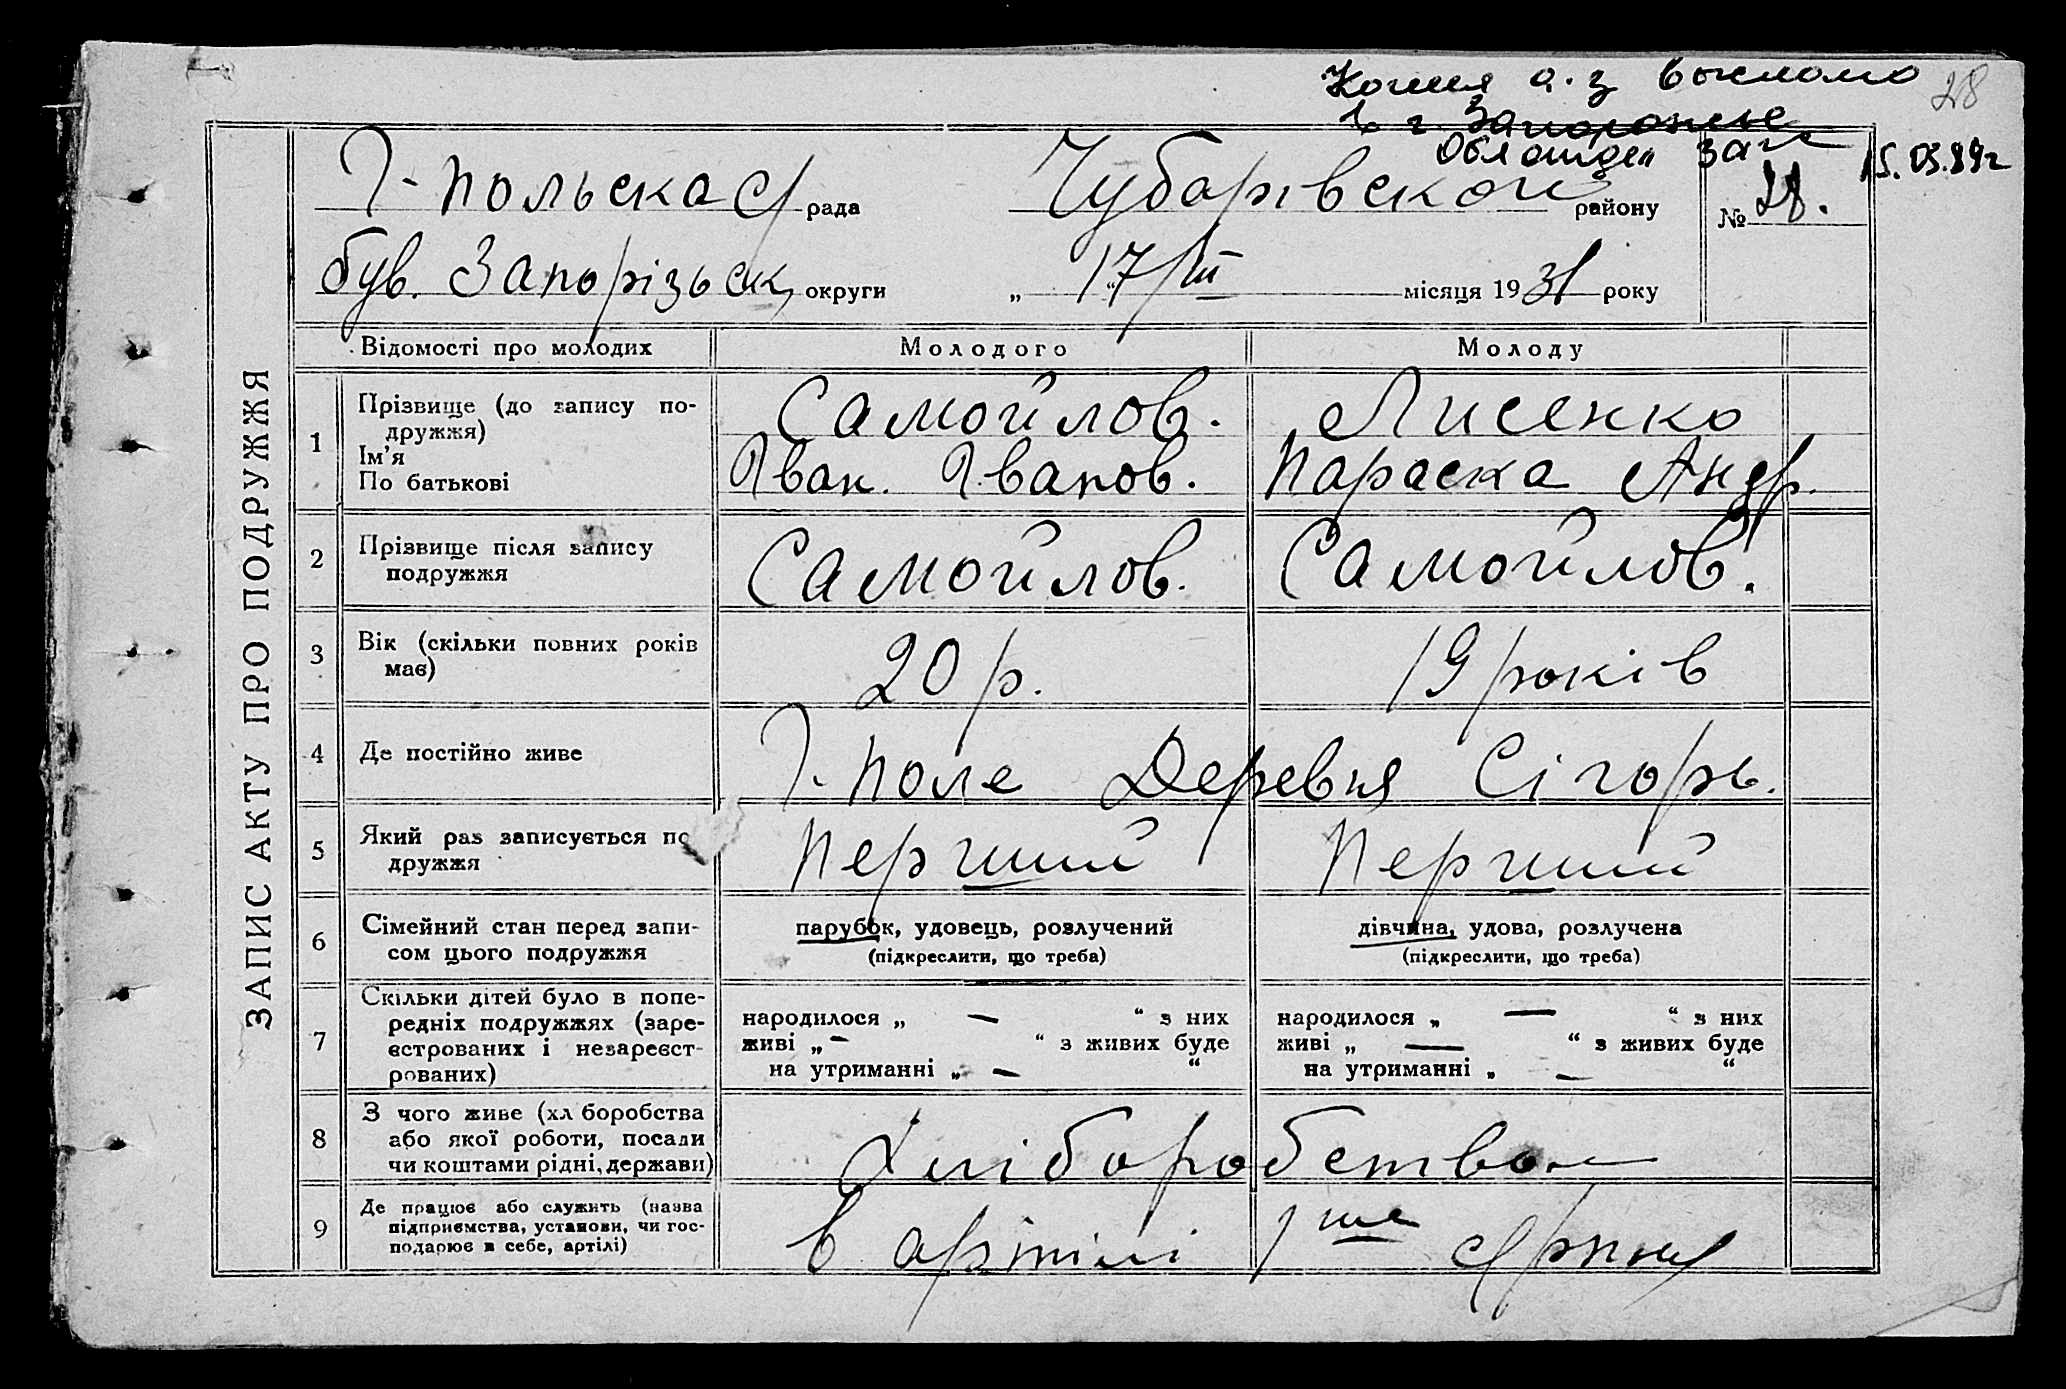 Копия а. з выслана 28
в г. Запорожье
Обл отдел загс 15.03.89г
ЗАПИС АКТУ ПРО ПОДРУЖЖЯ
Г-польська с/рада Чубарівської району № 28.
був. Запорізьск. округи „17/III“ місяця 1931 року
Відомості про молодих Молодого Молоду
1 Прізвище (до запису по-
дружжя) Самойлов. Лисенко
Ім'я
По батькові Іван. Іванов. Параска Андр.
2 Прізвище після запису
подружжя Самойлов. Самойлов.
3 Вік (скільки повних років
має) 20 р. 19 років
4 Де постійно живе Г-Поле Деревня Сігорь.
5 Який раз записується по
дружжя Перший Перший
6 Сімейний стан перед запи-
сом цього подружжя
парубок, удовець, розлучений
(підкреслити, що треба)
дівчина, удова, розлучена
(підкреслити, що треба)
7 Скільки дітей було в попе-
редніх подружжях (заре-
єстрованих і незареєст-
рованих)
народилося „ — “ з них
живі „ — “ з живих буде
на утриманні „ — “
народилося „ — “ з них
живі „ — “ з живих буде
на утриманні „ — “
8 З чого живе (хліборобства
або якої роботи, посади
чи коштами рідні, держави) Хліборобством
9 Де працює або служить (назва
підприємства, установи, чи гос-
подарює в себе, артілі) в артілі 1ше